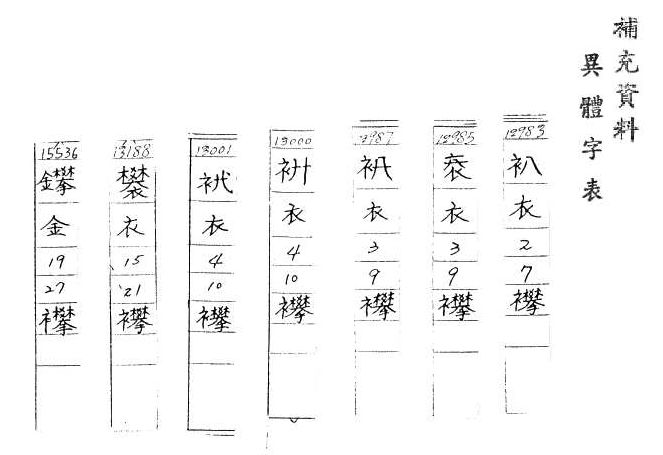 補充資料
異體字表
12983
衣
2
7
襻
12985
衣
3
9
襻
12987
衣
3
9
襻
13000
衣
4
10
襻
13001
衣
4
10
襻
13188
衣
15
21
襻
15536
鑻
金
19
27
襻